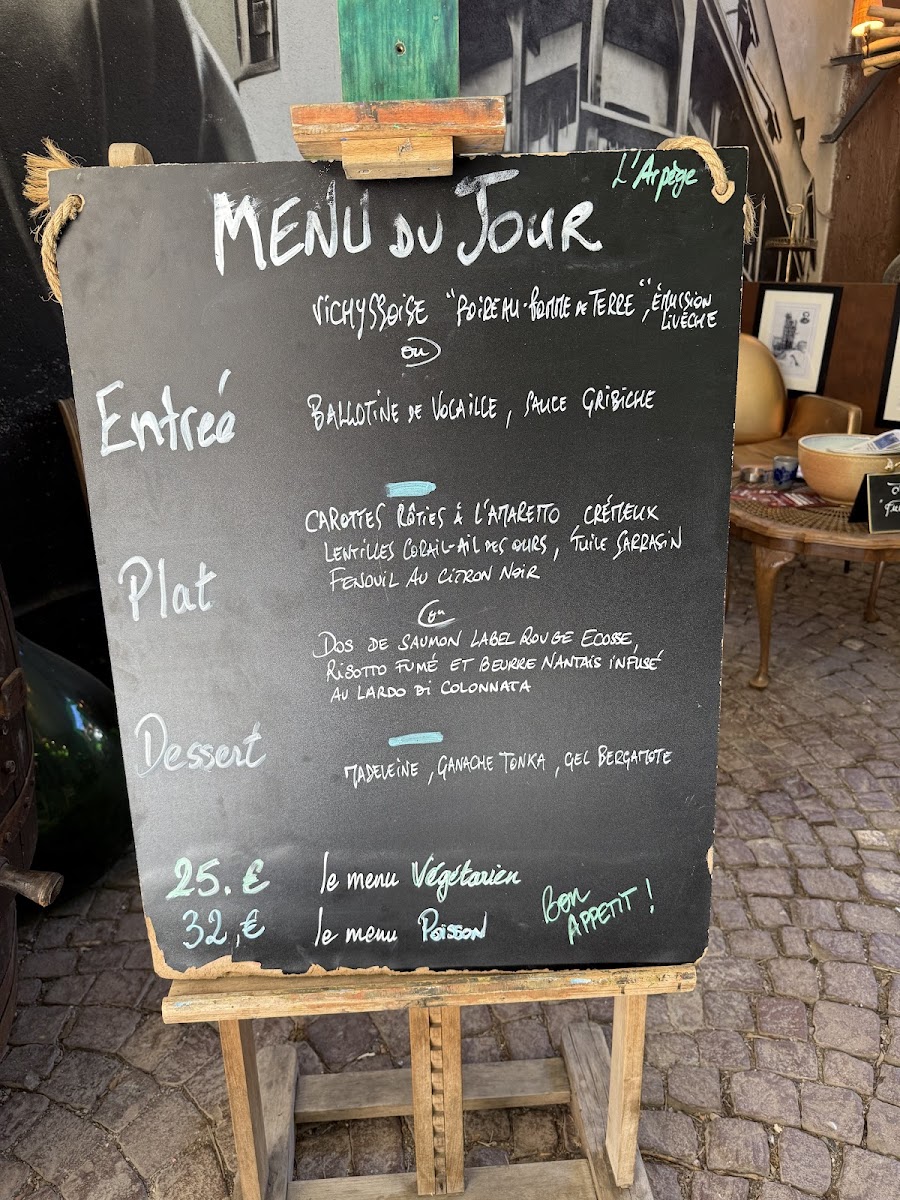 L'Arpège
MENU DU JOUR
VICHYSSOISE "POIREAU-POMME DE TERRE", ÉMULSION
LIVÈCHE
ou
Entrée
BALLOTINE DE VOLAILLE, SAUCE GRIBICHE
CAROTTES RÔTIES À L'AMARETTO CRÉMEUX
LENTILLES CORAIL-AIL DES OURS, TUILE SARRASIN
Plat
FENOUIL AU CITRON NOIR
ou
DOS DE SAUMON LABEL ROUGE ECOSSE,
RISOTTO FUMÉ ET BEURRE NANTAIS INFUSÉ
AU LARDO DI COLONNATA
Dessert
MADELEINE, GANACHE TONKA, GEL BERGAMOTE
25.€ le menu Végétarien
32,€ le menu Poisson
BON
APPETIT!